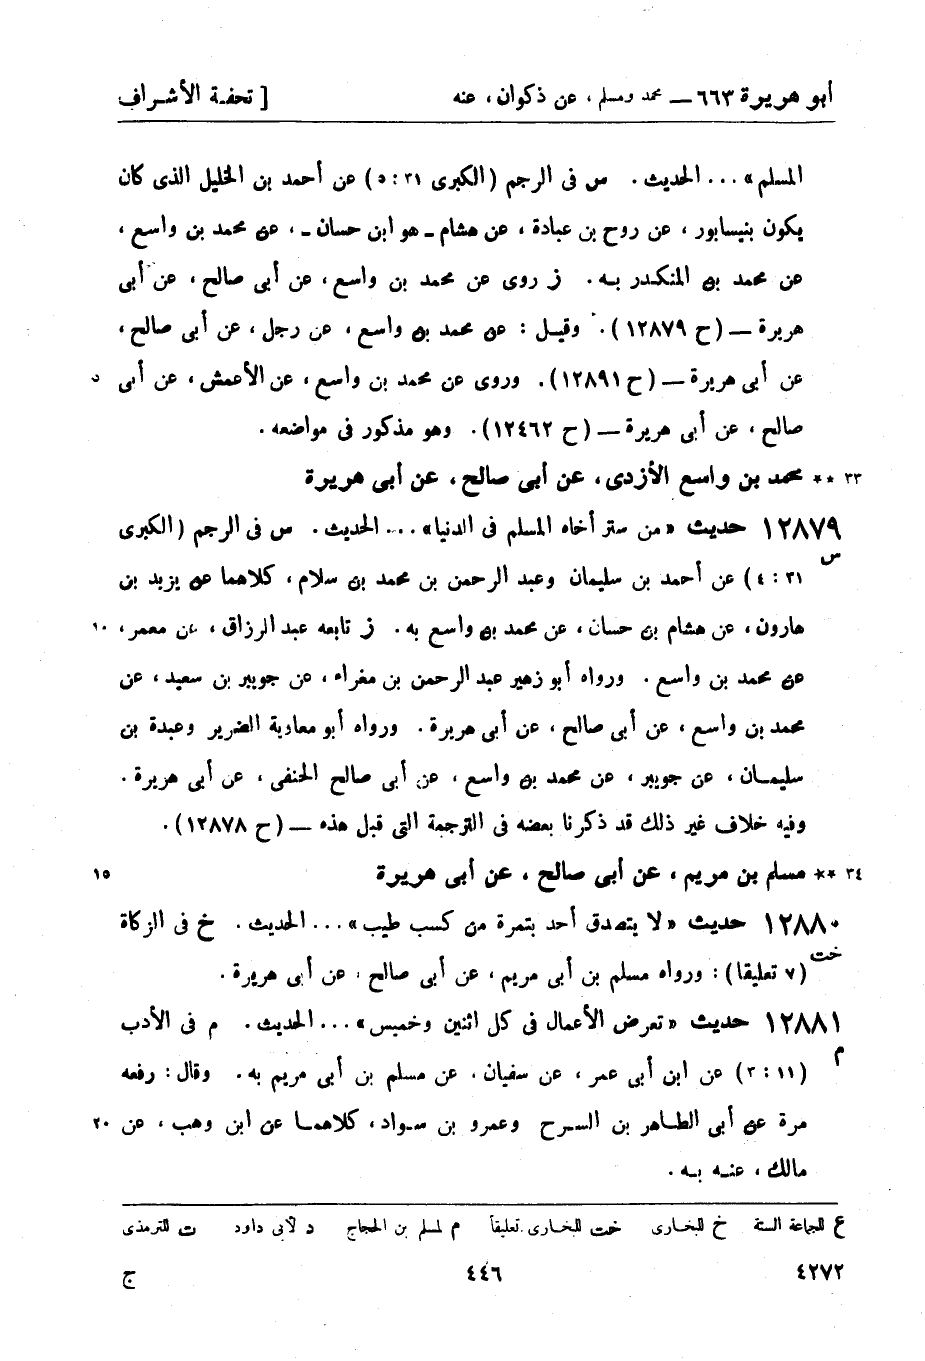 أبو هريرة ٦٦٣ ــ محمد ومسلم ، عن ذكوان ، عنه [ تحفة الأشراف
المسلم» ... الحديث . س فى الرجم (الكبرى ٣١ : ٥) عن أحمد بن الخليل الذى كان
يكون بنيسابور ، عن روح بن عبادة ، عن هشام ـ هو ابن حسان ـ ، عن محمد بن واسع ،
عن محمد بن المنكدر به . ز روى عن محمد بن واسع ، عن أبى صالح ، عن أبى
هريرة ــ (ح ١٢٨٧٩) . وقيل : عن محمد بن واسع ، عن رجل ، عن أبى صالح ،
عن أبى هريرة ــ (ح ١٢٨٩١) . وروى عن محمد بن واسع ، عن الأعمش ، عن أبى ٥
صالح ، عن أبى هريرة ــ (ح ١٢٤٦٢) . وهو مذكور فى مواضعه .
٣٣ ** محمد بن واسع الأزدى ، عن أبى صالح ، عن أبى هريرة
١٢٨٧٩ حديث «من ستر أخاه المسلم فى الدنيا» ... الحديث . س فى الرجم (الكبرى
س ٣١ : ٤) عن أحمد بن سليمان وعبد الرحمن بن محمد بن سلام ، كلاهما عن يزيد بن
هارون ، عن هشام بن حسان ، عن محمد بن واسع به . ز تابعه عبد الرزاق ، عن معمر ، ١٠
عن محمد بن واسع . ورواه أبو زهير عبد الرحمن بن مغراء ، عن جويبر بن سعيد ، عن
محمد بن واسع ، عن أبى صالح ، عن أبى هريرة . ورواه أبو معاوية الضرير وعبدة بن
سليمان ، عن جويبر ، عن محمد بن واسع ، عن أبى صالح الحنفى ، عن أبى هريرة .
وفيه خلاف غير ذلك قد ذكرنا بعضه فى الترجمة التى قبل هذه ــ (ح ١٢٨٧٨) .
٣٤ ** مسلم بن مريم ، عن أبى صالح ، عن أبى هريرة ١٥
١٢٨٨٠ حديث «لا يتصدق أحد بتمرة من كسب طيب» ... الحديث . خ فى الزكاة
خت (٧ تعليقا) : ورواه مسلم بن أبى مريم ، عن أبى صالح ، عن أبى هريرة .
١٢٨٨١ حديث «تعرض الأعمال فى كل اثنين وخميس» ... الحديث . م فى الأدب
م (١١ : ٣) عن ابن أبى عمر ، عن سفيان ، عن مسلم بن أبى مريم به . وقال : رفعه
مرة عن أبى الطاهر بن السرح وعمرو بن سواد ، كلاهما عن ابن وهب ، عن ٢٠
مالك ، عنه به .
ع للجماعة الستة خ للبخارى خت للبخارى تعليقاً م لمسلم بن الحجاج د لأبى داود ت للترمذى
٤٢٧٢ ٤٤٦ ج